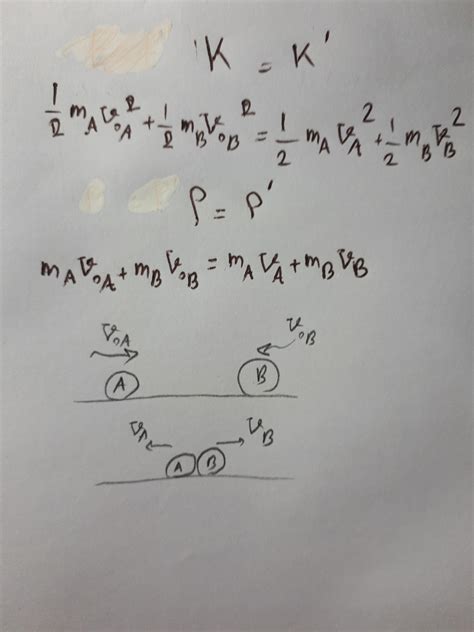 K = K'
1/2 m_A v_{oA}^2 + 1/2 m_B v_{oB}^2 = 1/2 m_A v_A^2 + 1/2 m_B v_B^2
P = P'
m_A v_{oA} + m_B v_{oB} = m_A v_A + m_B v_B
v_{oA} v_{oB}
A B
v_A v_B
A B